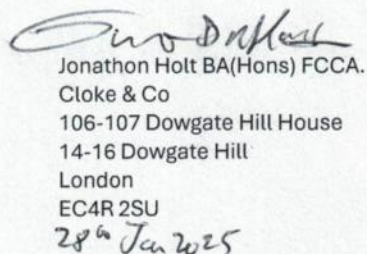 Jonathon Holt BA(Hons) FCCA.
Cloke & Co
106-107 Dowgate Hill House
14-16 Dowgate Hill
London
EC4R 2SU
28th Jan 2025